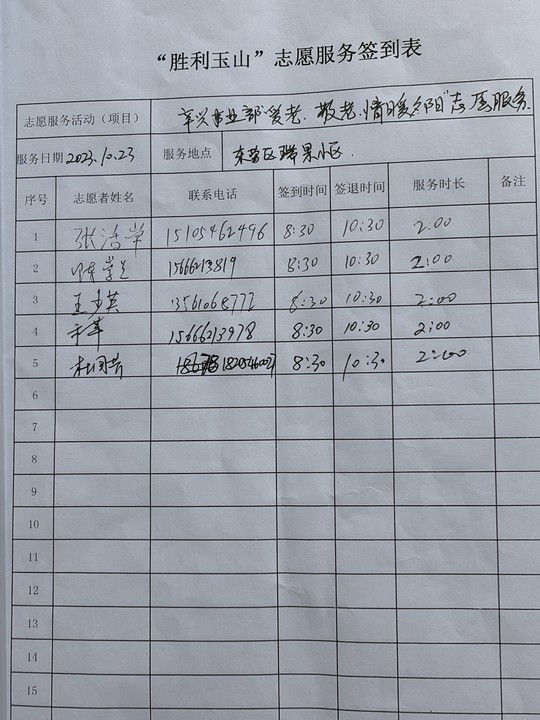 “胜利玉山”志愿服务签到表
志愿服务活动（项目） 事业部“爱老、敬老，情暖夕阳”志愿服务
服务日期 2023.10.23 服务地点 东营区 小区
序号 志愿者姓名 联系电话 签到时间 签退时间 服务时长 备注
1 张洁学 15105462496 8:30 10:30 2:00
2 8:30 10:30 2:00
3 王少英 13561068772 8:30 10:30 2:00
4 15666213978 8:30 10:30 2:00
5 8:30 10:30 2:00
6
7
8
9
10
11
12
13
14
15